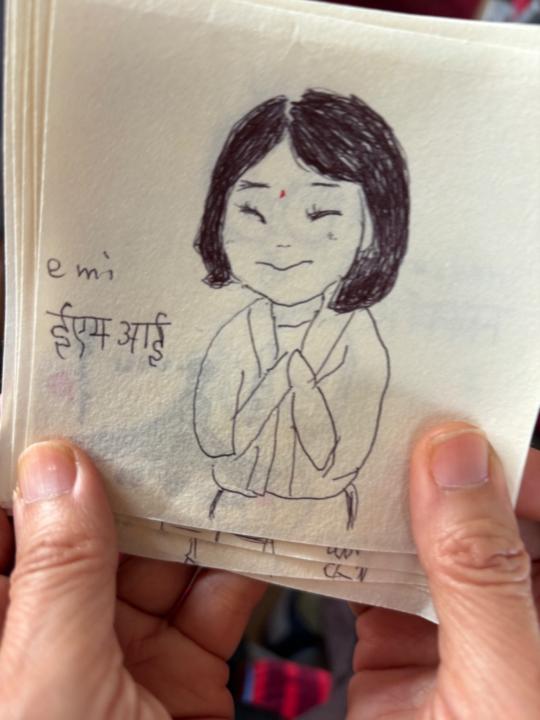 emi
ईएम आई